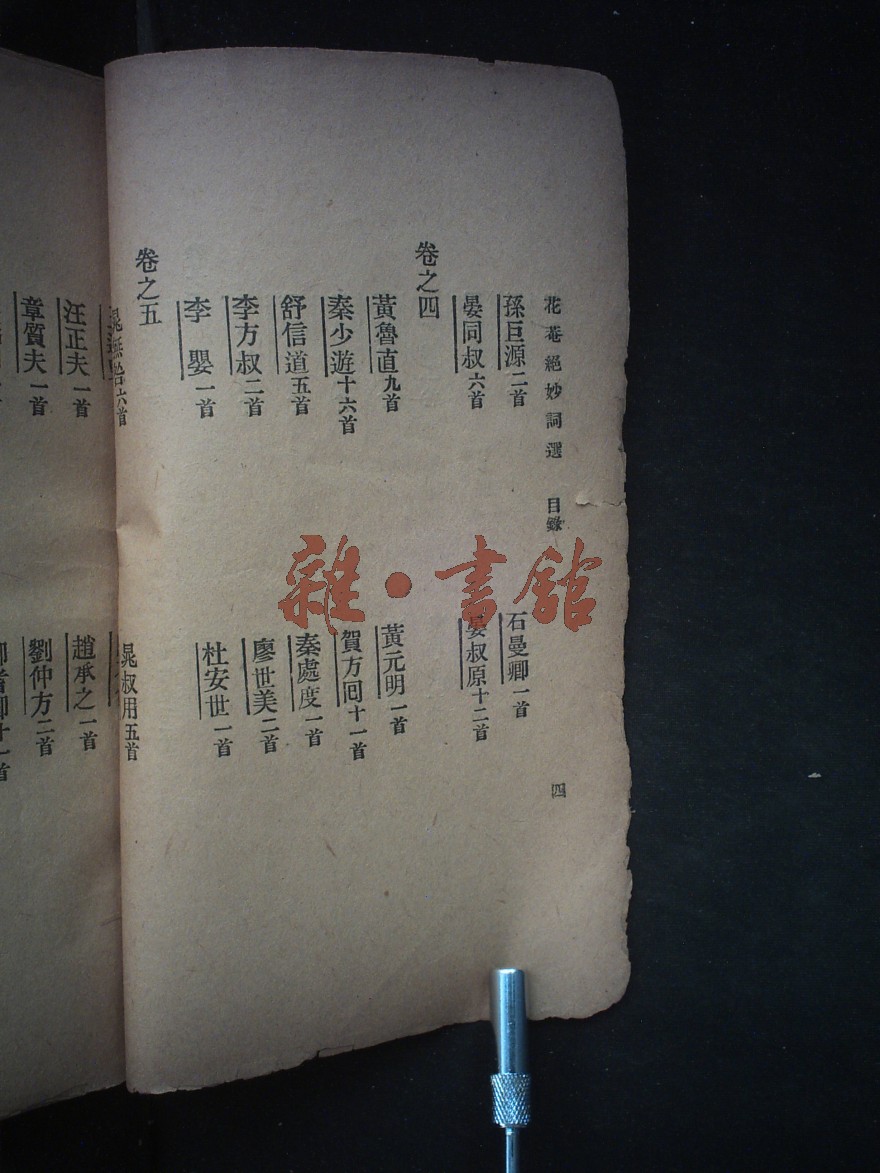 花菴絕妙詞選 目錄 四
孫巨源二首 石曼卿一首
晏同叔六首 晏叔原十二首
卷之四
黃魯直九首 黃元明一首
秦少遊十六首 賀方回十一首
舒信道五首 秦處度一首
李方叔二首 廖世美二首
李嬰一首 杜安世一首
卷之五
晁無咎六首 晁叔用五首
汪正夫一首 趙承之一首
章質夫一首 劉仲方二首
雜·書館